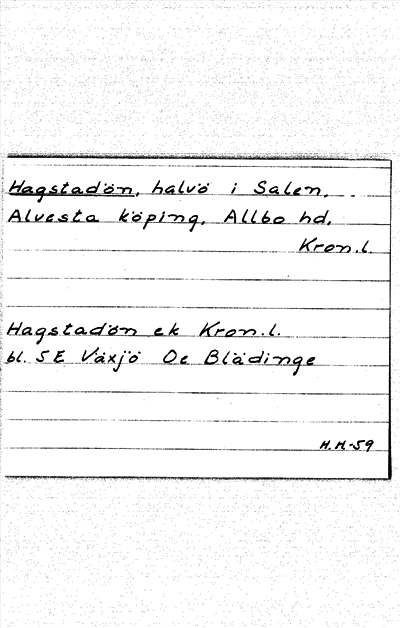 Hagstadön, halvö i Salen,
Alvesta köping, Allbo hd,
Kron.l.
Hagstadön ek Kron.l.
bl. 5E Växjö Oe Blädinge
H.H.-59